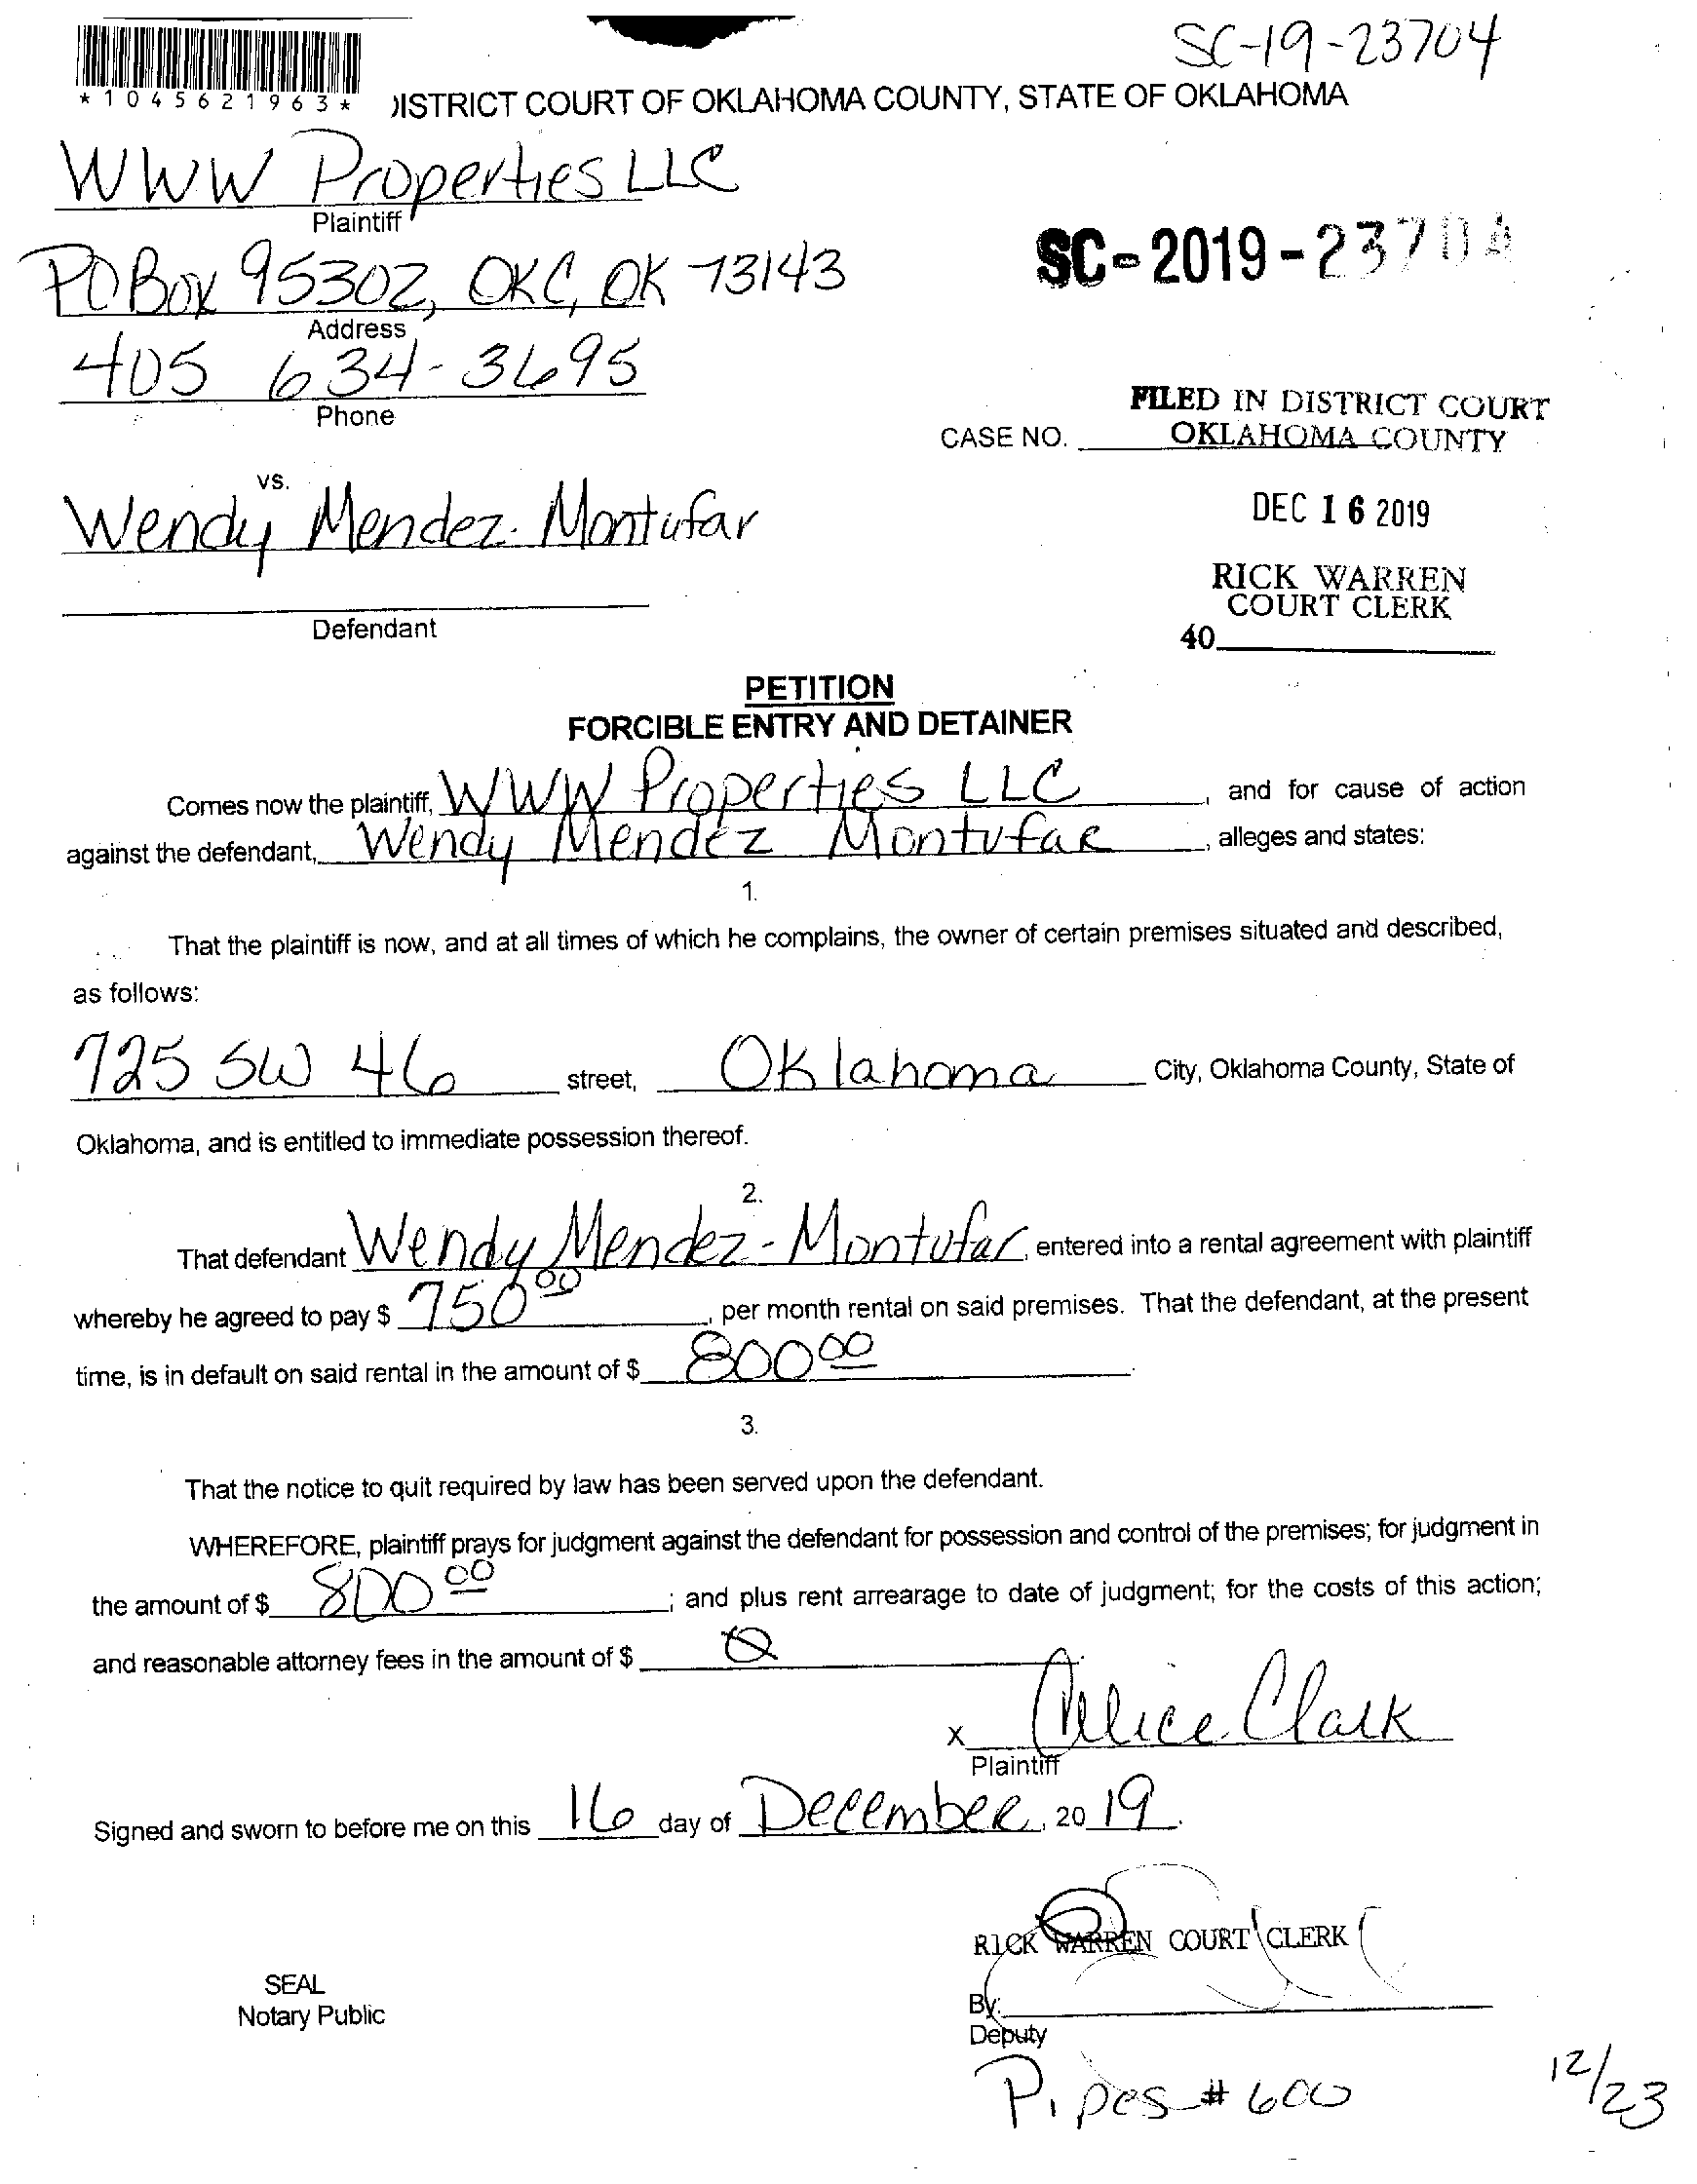 SC-19-23704
*1045621963*
DISTRICT COURT OF OKLAHOMA COUNTY, STATE OF OKLAHOMA
WWW Properties LLC
Plaintiff
PO Box 95302, OKC, OK 73143
SC-2019-23704
Address
405 634-3695
Phone
FILED IN DISTRICT COURT
CASE NO. OKLAHOMA COUNTY
vs.
Wendy Mendez-Montufar
DEC 16 2019
RICK WARREN
COURT CLERK
Defendant
40
PETITION
FORCIBLE ENTRY AND DETAINER
Comes now the plaintiff, WWW Properties LLC, and for cause of action
against the defendant, Wendy Mendez Montufar, alleges and states:
1.
That the plaintiff is now, and at all times of which he complains, the owner of certain premises situated and described,
as follows:
725 SW 46 street, Oklahoma City, Oklahoma County, State of
Oklahoma, and is entitled to immediate possession thereof.
2.
That defendant Wendy Mendez-Montufar, entered into a rental agreement with plaintiff
whereby he agreed to pay $ 750 00, per month rental on said premises. That the defendant, at the present
time, is in default on said rental in the amount of $ 800 00.
3.
That the notice to quit required by law has been served upon the defendant.
WHEREFORE, plaintiff prays for judgment against the defendant for possession and control of the premises; for judgment in
the amount of $ 800 00; and plus rent arrearage to date of judgment; for the costs of this action;
and reasonable attorney fees in the amount of $ 0
x Alice Clark
Plaintiff
Signed and sworn to before me on this 16 day of December, 20 19.
RICK WARREN COURT CLERK
SEAL
Notary Public
By:
Deputy
Pipes # 600
12/23